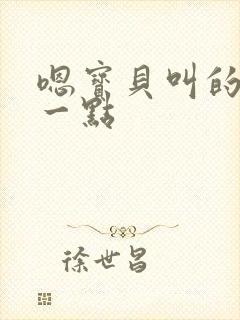 嗯寶貝叫的
一點
徐世昌